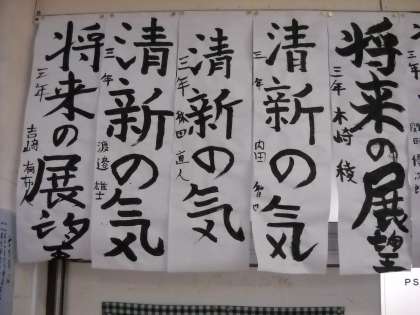 将来の展望
三年 木崎 稜
清新の気
三年 内田
清新の気
三年 田 直人
清新の気
三年 渡邉 雄士
将来の展望
三年 吉崎
PS